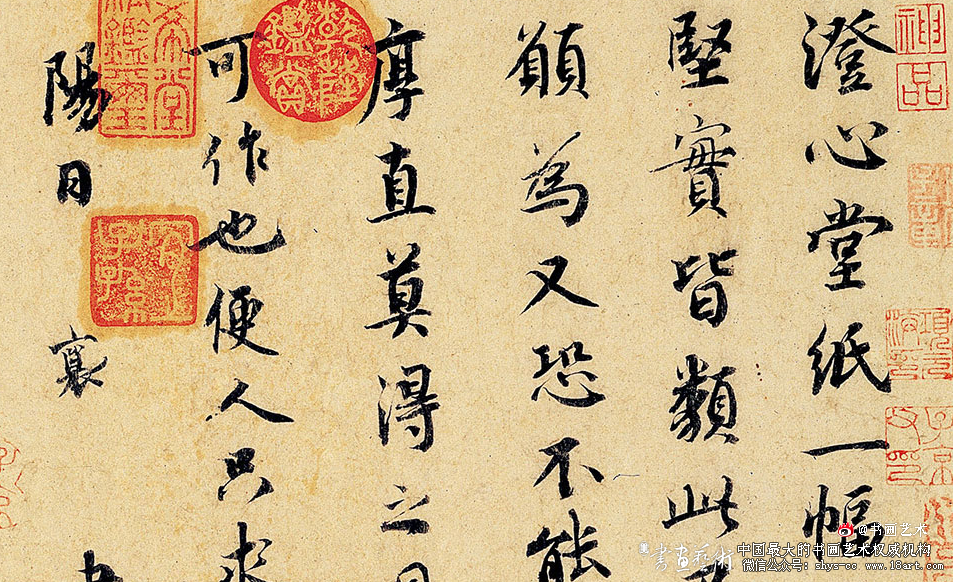 神品
澄心堂紙一幅
堅實皆類此
願為又恐不能
厚直莫得之
可作也便人只求
陽日 襄
乾隆鑑賞
宜子孫
@书画艺术
書画藝術
中国最大的书画艺术权威机构
微信公众号：shys-cc www.18art.com